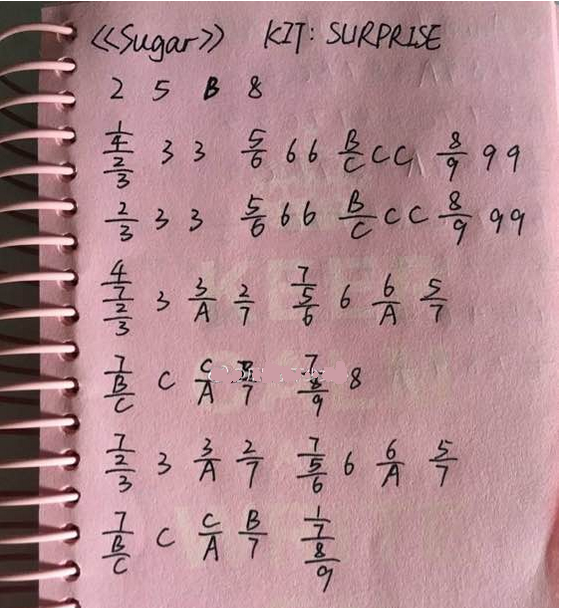 《Sugar》 KIT: SURPRISE
2 5 B 8
1/4/2/3 3 3 5/6 6 6 B/C C C 8/9 9 9
2/3 3 3 5/6 6 6 B/C C C 8/9 9 9
4/7/2/3 3 3/A 2/7 7/5/6 6 6/A 5/7
7/B/C C C/A B/7 7/8/9 8
7/2/3 3 3/A 2/7 7/5/6 6 6/A 5/7
7/B/C C C/A B/7 1/7/8/9